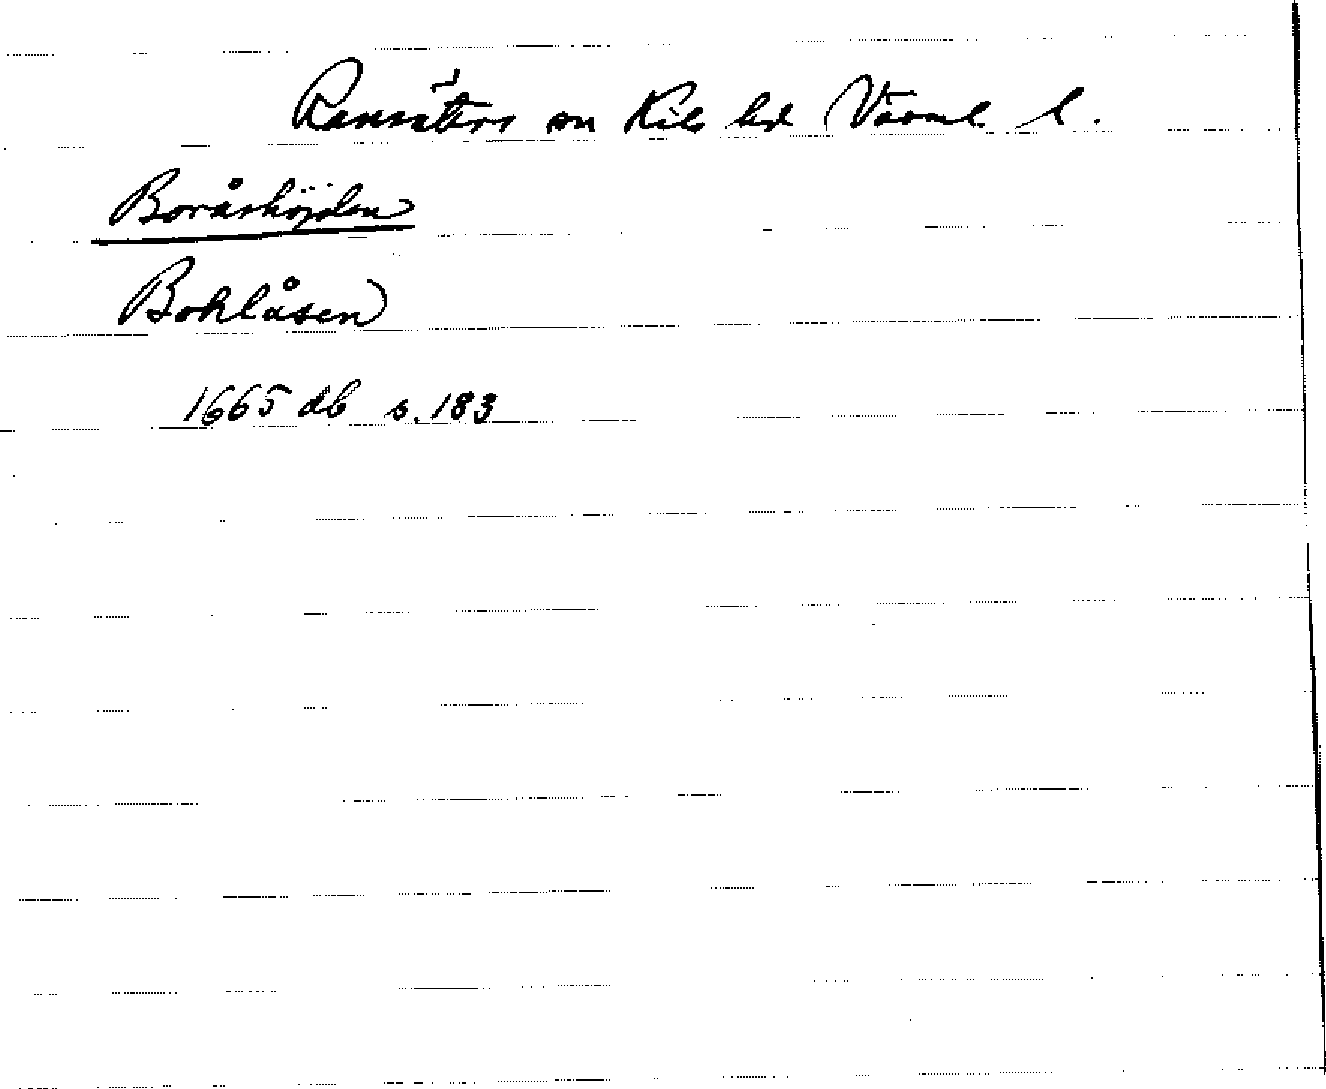 Ransäters sn Kils hd Värml l.
Boråshöjden
Bohlåsen
1665 db s. 183